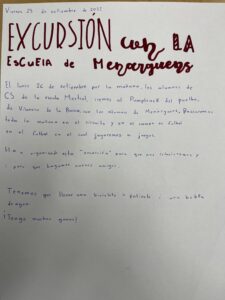 Viernes 23 de setiembre de 2022
EXCURSIÓN con LA
ESCUELA de Menarguens
El lunes 26 de setiembre por la mañana, los alumnos de
CS de la escuela Mestral, iremos al Pumptrack del pueblo,
de Vilanova de la Barca, con los alumnos de Menarguens. Pasaremos
toda la mañana en el circuito y en el campo de futbol
en el futbol en el cual jugaremos a juegos.
Han organizado esta para que nos relacionemos y
i para que hagamos nuevos amigos.
Tenemos que llevar una bicicleta o patinete i una botella
de agua.
¡Tengo muchas ganas!